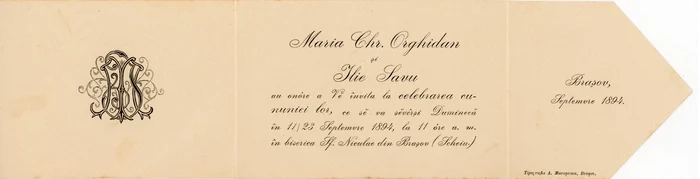 Maria Chr. Orghidan
și
Ilie Savu
au onóre a Vĕ invita la celebrarea cu-
nuniei lor, ce sĕ va sĕvêrși Duminecă
în 11/23 Septemvre 1894, la 11 óre a. m.
în biserica Sf. Nicolae din Brașov (Scheiu.)
Brașov,
Septemvre 1894.